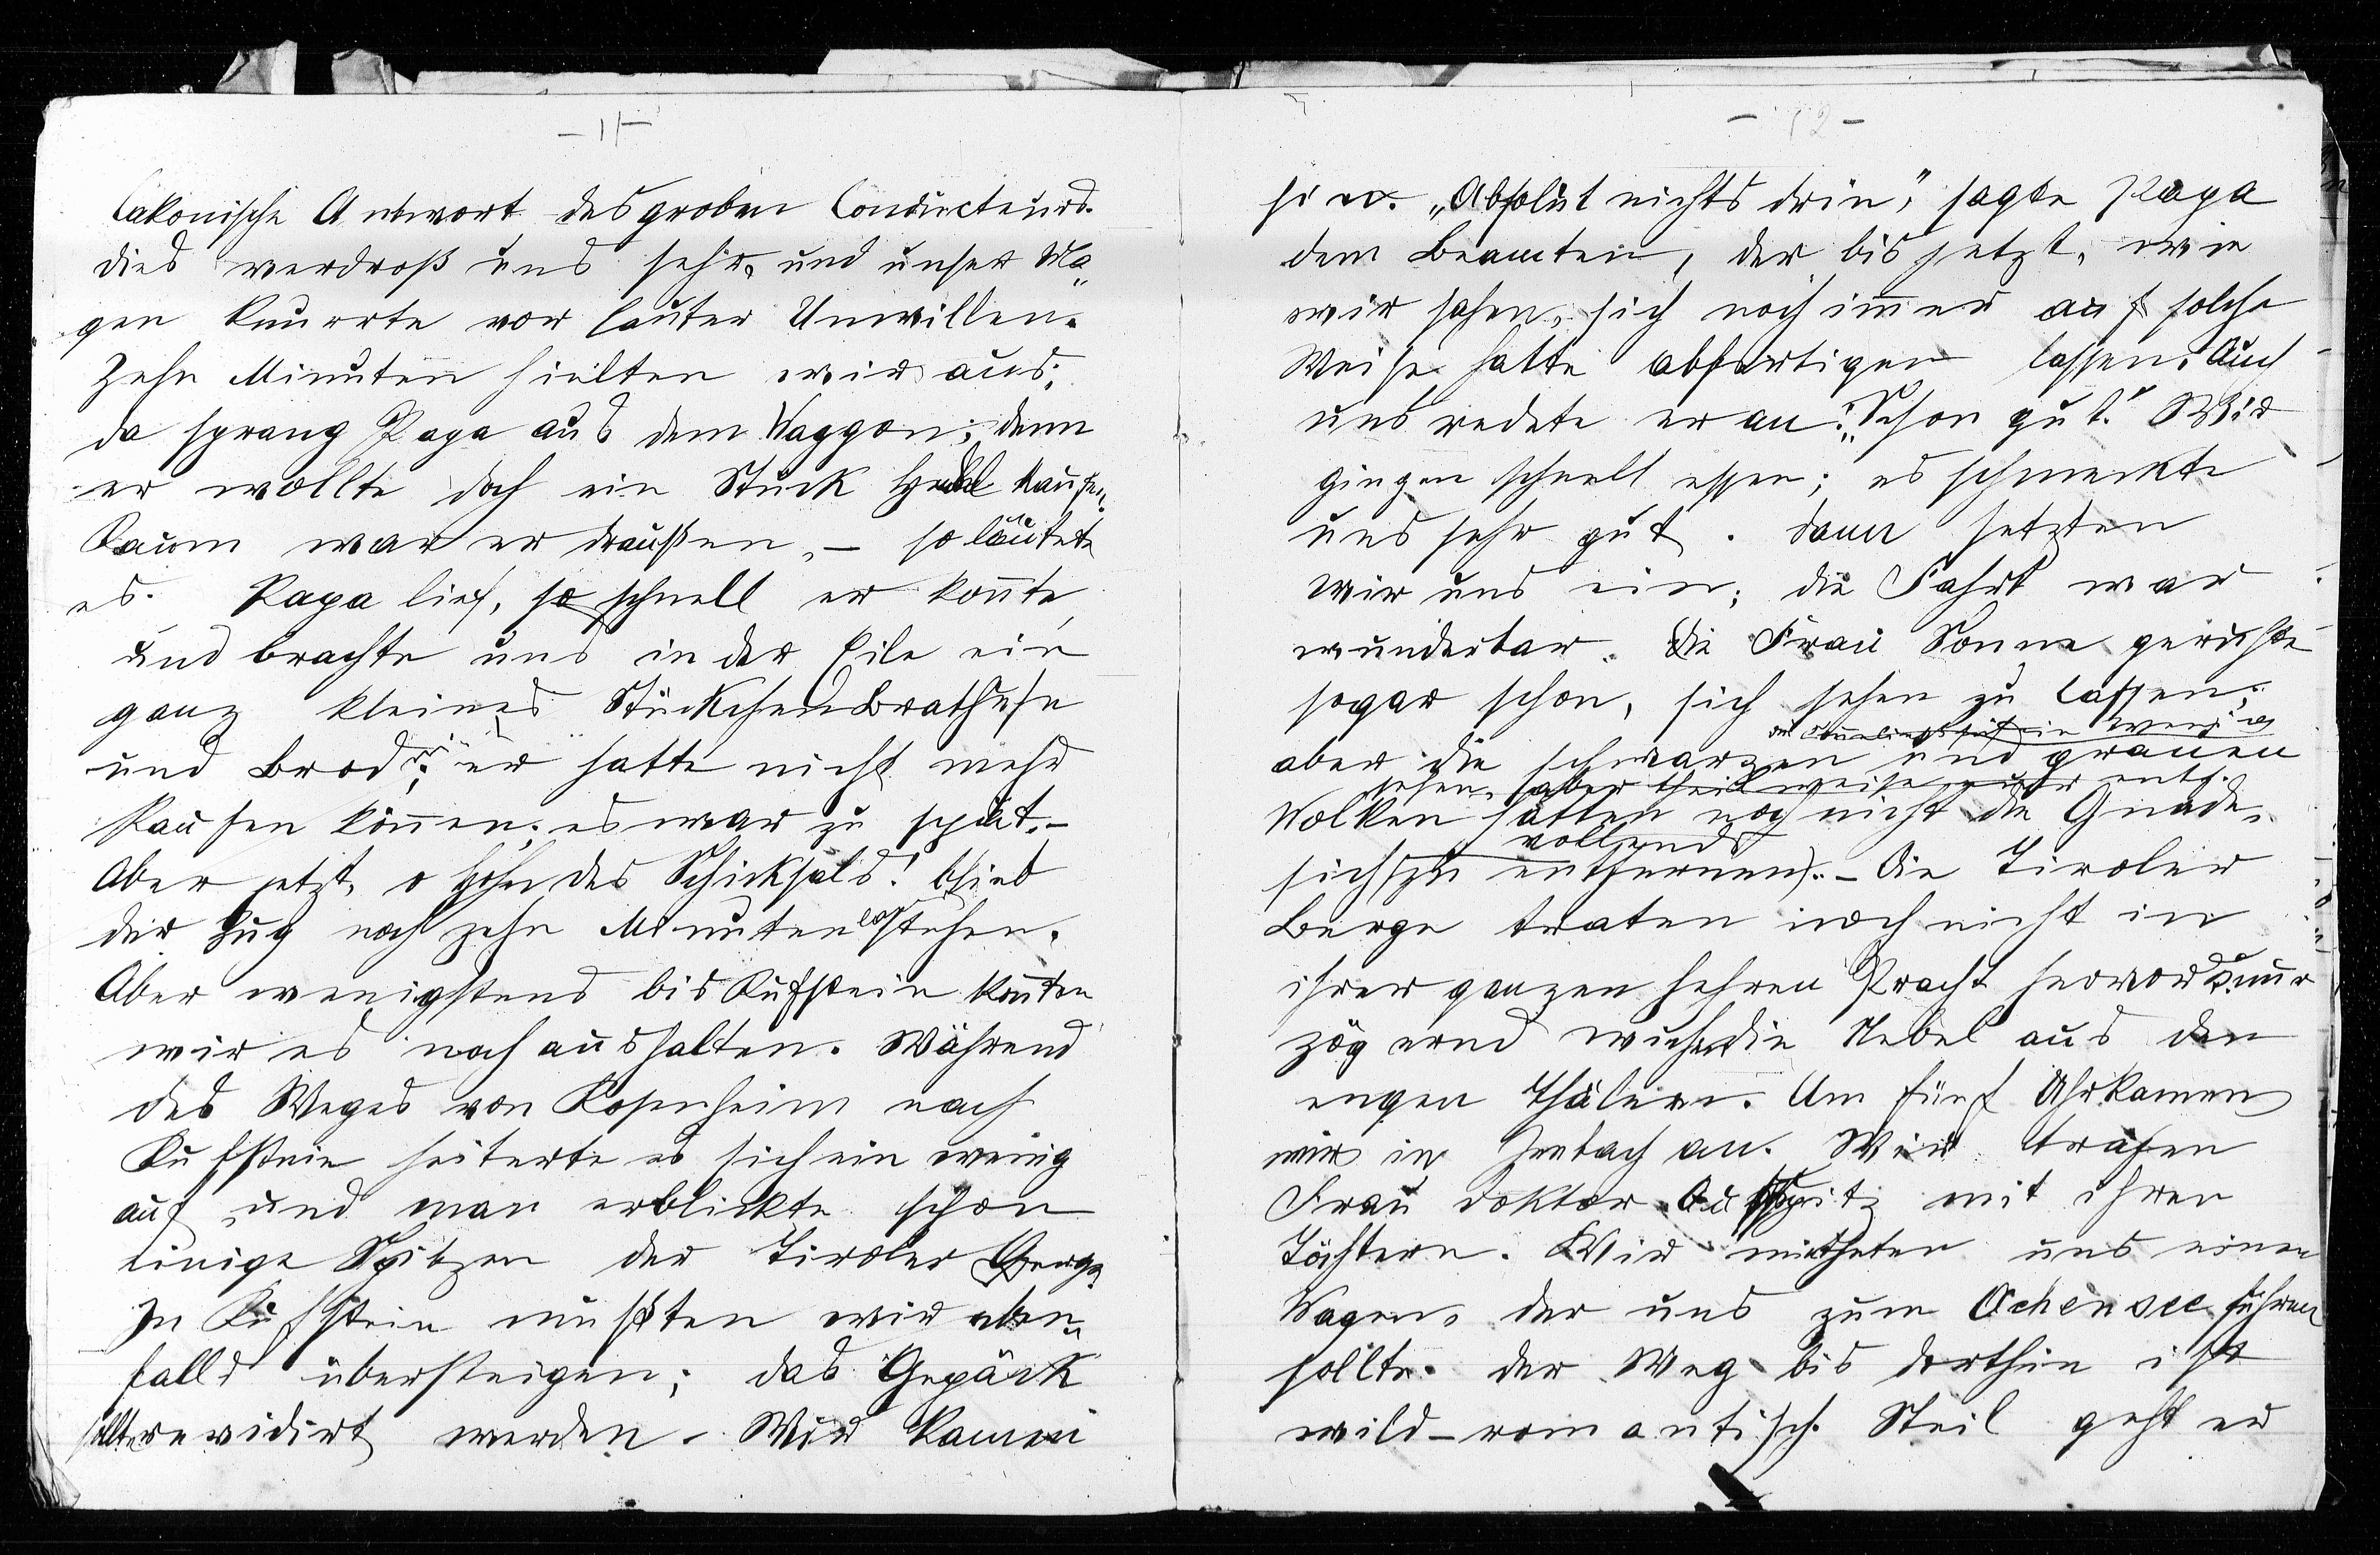 - 11 -
lakonische Antwort des groben Conducteurs.
dies verdroß uns sehr, und unser Ma„
gen knurrte vor lauter Unwillen.
Zehn Minuten hielten wir aus;
da sprang Papa aus dem Waggon; denn
er wollte doch ein Stück kaufen.
Kaum war er draußen, – so läutete
es. Papa lief, so schnell er konnte,
und brachte uns in der Eile ein
ganz kleines Stückchen Brathuhn
und Brod; er hatte nicht mehr
kaufen können; es war zu spät. –
Aber jetzt, o Hohn des Schicksals! blieb
der Zug noch zehn Minuten stehen.
Aber wenigstens bis Kufstein konnten
wir es noch aushalten. Während
des Weges von Rosenheim nach
Kufstein heiterte es sich ein wenig
auf und man erblickte schon
einige Spitzen der Tiroler Berge.
In Kufstein mußten wir eben„
falls übersteigen; das Gepäck
sollte revidirt werden. Wir kamen
- 12 -
hin. „Absolut nichts drin," sagte Papa
dem Beamten, der bis jetzt, wie
wir sahen, sich noch immer auf solche
Weise hatte abfertigen lassen. Auch
uns redete er an: „Schon gut." Wir
gingen schnell essen; es schmeckte
uns sehr gut. dann setzten
wir uns ein; die Fahrt war
wunderbar. Die Frau Sonne geruhte
sogar schon, sich sehen zu lassen;
aber die schwarzen und grauen
sehen, aber theilweise entf.
Wolken hatten noch nicht die Gnade,
vollends
sich zu entfernen. – Die Tiroler
Berge traten noch nicht in
ihrer ganzen hehren Pracht hervor; nur
zögernd wichen die Nebel aus den
engen Thälern. Um fünf Uhr kamen
wir in Jenbach an. Wir trafen
Frau Doktor Auspitz mit ihren
Töchtern. Wir mietheten uns einen
Wagen, der uns zum Achensee führen
sollte. der Weg bis dorthin ist
wild-romantisch. Steil geht er